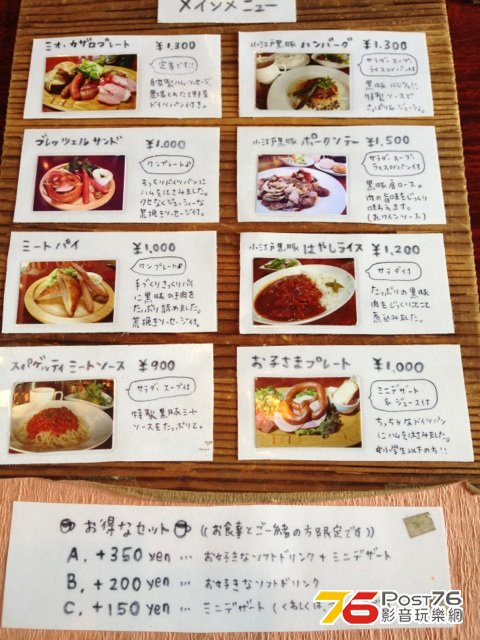 メインメニュー
ミオ・カザロプレート ¥1,300
定番です!!
自家製ハム・ソーセージ、
農場とれたて野菜
ドイツパン付き。
小江戸黒豚 ハンバーグ ¥1,300
サラダ・スープ・
ライスorパン付
黒豚100%!!
特製ソースで
さっぱり&ジューシィ。
ブレッツェルサンド ¥1,000
ワンプレート♪
もっちりドイツパンに
ハムをはさみました。
クセなくジューシーな
荒挽きソーセージ付。
小江戸黒豚 ポークソテー ¥1,500
サラダ・スープ・
ライスorパン付
黒豚肩ロース。
肉の旨味をじっくり
味わえます。
(赤ワインソース)
ミートパイ ¥1,000
ワンプレート♪
手づくりさっくりパイ
に黒豚ひき肉を
たっぷり詰めました。
荒挽きソーセージ付。
小江戸黒豚 はやしライス ¥1,200
サラダ付
たっぷりの黒豚
肉をじっくりことこと
煮込みました。
スパゲッティミートソース ¥900
サラダ・スープ付
特製黒豚ミート
ソースをたっぷりと。
お子さまプレート ¥1,000
ミニデザート
&ジュース付
ちっちゃなドイツパン
にハムをはさみました。
小学生以下の方!!
お得なセット ((お食事とご一緒の方限定です))
A. +350 yen … お好きなソフトドリンク + ミニデザート
B. +200 yen … お好きなソフトドリンク
C. +150 yen … ミニデザート (くわしくは、
76 Post76
影音玩樂網